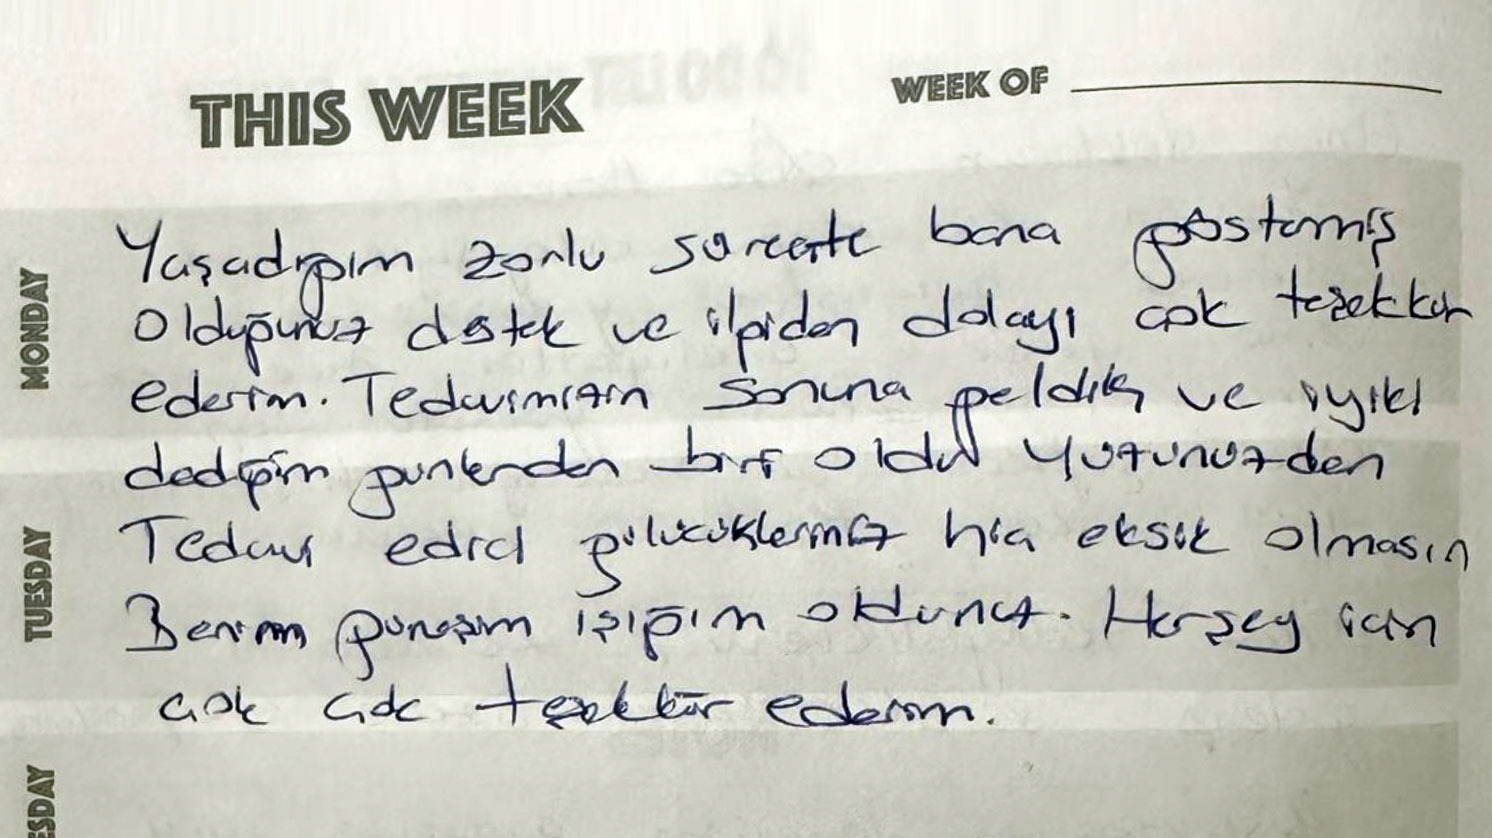 THIS WEEK
WEEK OF
MONDAY
Yaşadığım zorlu süreçte bana göstermiş
Olduğunuz destek ve ilgiden dolayı çok teşekkür
ederim. Tedavimizin sonuna geldik ve iyiki
dediğim günlerden biri oldu yüzünüzden
TUESDAY
Tedavi edici gülücükleriniz hiç eksik olmasın
Benim güneşim ışığım oldunuz. Herşey için
çok çok teşekkür ederim.
ESDAY